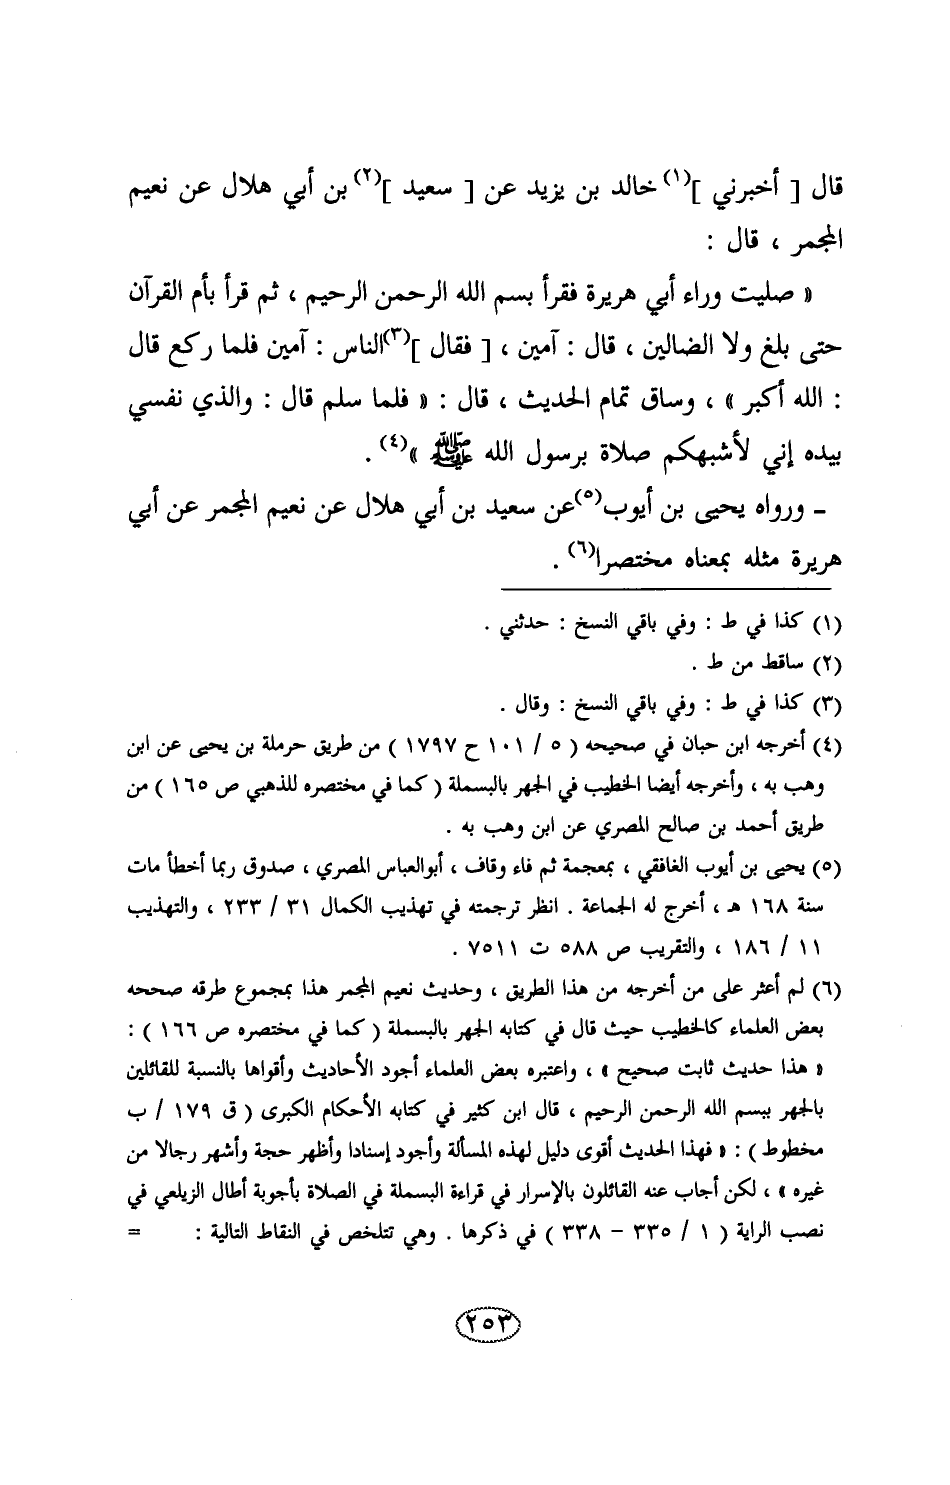 قال [ أخبرني ](١) خالد بن يزيد عن [ سعيد ](٢) بن أبي هلال عن نعيم
المجمر ، قال :
« صليت وراء أبي هريرة فقرأ بسم الله الرحمن الرحيم ، ثم قرأ بأم القرآن
حتى بلغ ولا الضالين ، قال : آمين ، [ فقال ](٣) الناس : آمين فلما ركع قال
: الله أكبر » ، وساق تمام الحديث ، قال : « فلما سلم قال : والذي نفسي
بيده إني لأشبهكم صلاة برسول الله ﷺ »(٤) .
ـ ورواه يحيى بن أيوب(٥) عن سعيد بن أبي هلال عن نعيم المجمر عن أبي
هريرة مثله بمعناه مختصرا(٦) .
(١) كذا في ط : وفي باقي النسخ : حدثني .
(٢) ساقط من ط .
(٣) كذا في ط : وفي باقي النسخ : وقال .
(٤) أخرجه ابن حبان في صحيحه ( ٥ / ١٠١ ح ١٧٩٧ ) من طريق حرملة بن يحيى عن ابن
وهب به ، وأخرجه أيضا الخطيب في الجهر بالبسملة ( كما في مختصره للذهبي ص ١٦٥ ) من
طريق أحمد بن صالح المصري عن ابن وهب به .
(٥) يحيى بن أيوب الغافقي ، بمعجمة ثم فاء وقاف ، أبوالعباس المصري ، صدوق ربما أخطأ مات
سنة ١٦٨ هـ ، أخرج له الجماعة . انظر ترجمته في تهذيب الكمال ٣١ / ٢٣٣ ، والتهذيب
١١ / ١٨٦ ، والتقريب ص ٥٨٨ ت ٧٥١١ .
(٦) لم أعثر على من أخرجه من هذا الطريق ، وحديث نعيم المجمر هذا بمجموع طرقه صححه
بعض العلماء كالخطيب حيث قال في كتابه الجهر بالبسملة ( كما في مختصره ص ١٦٦ ) :
« هذا حديث ثابت صحيح » ، واعتبره بعض العلماء أجود الأحاديث وأقواها بالنسبة للقائلين
بالجهر ببسم الله الرحمن الرحيم ، قال ابن كثير في كتابه الأحكام الكبرى ( ق ١٧٩ / ب
مخطوط ) : « فهذا الحديث أقوى دليل لهذه المسألة وأجود إسنادا وأظهر حجة وأشهر رجالا من
غيره » ، لكن أجاب عنه القائلون بالإسرار في قراءة البسملة في الصلاة بأجوبة أطال الزيلعي في
نصب الراية ( ١ / ٣٣٥ – ٣٣٨ ) في ذكرها . وهي تتلخص في النقاط التالية : =
٢٥٣